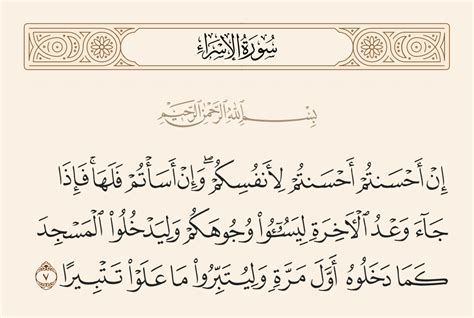 سُورَةُ الإِسۡرَاءِ
بِسۡمِ ٱللَّهِ ٱلرَّحۡمَٰنِ ٱلرَّحِيمِ
إِنۡ أَحۡسَنتُمۡ أَحۡسَنتُمۡ لِأَنفُسِكُمۡۖ وَإِنۡ أَسَأۡتُمۡ فَلَهَاۚ فَإِذَا
جَآءَ وَعۡدُ ٱلۡأٓخِرَةِ لِيَسُـُٔواْ وُجُوهَكُمۡ وَلِيَدۡخُلُواْ ٱلۡمَسۡجِدَ
كَمَا دَخَلُوهُ أَوَّلَ مَرَّةٖ وَلِيُتَبِّرُواْ مَا عَلَوۡاْ تَتۡبِيرًا ٧